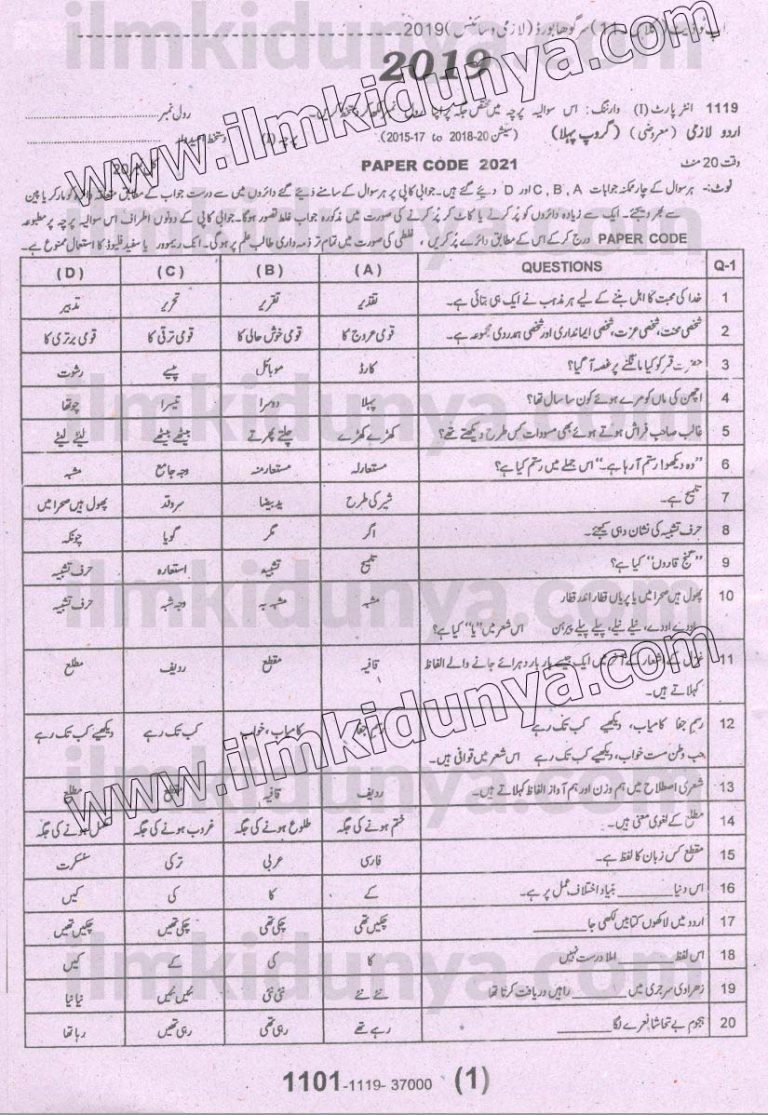 سرگودھا بورڈ (لازمی و سائنس) 2019
2019
1119 انٹر پارٹ (I) وارننگ: اس سوالیہ پرچہ میں مختص جگہ پر اپنا رول نمبر رول نمبر
اردو لازمی (معروضی) (گروپ پہلا) (سیشن 20-2018 to 17-2015) پرچہ (I)
وقت 20 منٹ PAPER CODE 2021
نوٹ:- ہر سوال کے چار ممکنہ جوابات A ,B ,C اور D دیئے گئے ہیں۔ جوابی کاپی پر ہر سوال کے سامنے دیئے گئے دائروں میں سے درست جواب کے مطابق متعلقہ دائرہ کو مارکر یا پین
سے بھر دیجئے۔ ایک سے زیادہ دائروں کو پُر کرنے یا کاٹ کر پُر کرنے کی صورت میں مذکورہ جواب غلط تصور ہوگا۔ جوابی کاپی کے دونوں اطراف اس سوالیہ پرچہ پر مطبوعہ
PAPER CODE درج کر کے اس کے مطابق دائرے پُر کریں، غلطی کی صورت میں تمام تر ذمہ داری طالب علم پر ہوگی۔ انک ریموور یا سفید فلیوڈ کا استعمال ممنوع ہے۔
Q-1 QUESTIONS (A) (B) (C) (D)
1 خدا کی محبت کا اہل بننے کے لیے ہر مذہب نے ایک ہی بتائی ہے۔ تقدیر تقریر تحریر تدبیر
2 شخصی محنت، شخصی عزت، شخصی ایمانداری اور شخصی ہمدردی مجموعہ ہے۔ قومی عروج کا قومی خوش حالی کا قومی ترقی کا قومی برتری کا
3 حضرت قمر کو کیا مانگنے پر غصہ آ گیا؟ کارڈ موبائل پیسے رشوت
4 اچھن کی ماں کو مرے ہوئے کون سا سال تھا؟ پہلا دوسرا تیسرا چوتھا
5 غالب صاحب فراش ہوتے ہوئے بھی مسودات کس طرح دیکھتے تھے؟ کھڑے کھڑے چلتے پھرتے بیٹھے بیٹھے لیٹے لیٹے
6 ''وہ دیکھو! رستم آ رہا ہے۔'' اس جملے میں رستم کیا ہے؟ مستعارلہ مستعارمنہ وجہ جامع مشبہ
7 تلمیح ہے۔ شیر کی طرح یدِبیضا سروقد پھول ہیں صحرا میں
8 حرف تشبیہ کی نشان دہی کیجئے۔ اگر مگر گویا چونکہ
9 ''گنج قاروں'' کیا ہے؟ تلمیح تشبیہ استعارہ حرف تشبیہ
10 پھول ہیں صحرا میں یا پریاں قطار اندر قطار مشبہ مشبہ بہ وجہ شبہ حرف تشبیہ
اودے اودے، نیلے نیلے، پیلے پیلے پیرہن اس شعر میں ''یا'' کیا ہے؟
11 غزل کے اشعار کے آخر میں ایک جیسے بار بار دہرائے جانے والے الفاظ قافیہ مقطع ردیف مطلع
کہلاتے ہیں۔
12 رسمِ جفا کامیاب، دیکھیے کب تک رہے رسم جفا کامیاب، خواب کب تک رہے دیکھیے کب تک رہے
حب وطن مست خواب، دیکھیے کب تک رہے اس شعر میں قوافی ہیں۔
13 شعری اصطلاح میں ہم وزن اور ہم آواز الفاظ کہلاتے ہیں۔ ردیف قافیہ مطلع
14 مطلع کے لغوی معنی ہیں۔ ختم ہونے کی جگہ طلوع ہونے کی جگہ غروب ہونے کی جگہ ہونے کی جگہ
15 مقطع کس زبان کا لفظ ہے۔ فارسی عربی ترکی سنسکرت
16 اس دنیا ______ بنیاد اختلاف عمل پر ہے۔ کے کا کی کیں
17 اردو میں لاکھوں کتابیں لکھی جا ______ چکیں تھی چکی تھی چکی تھیں چکیں تھیں
18 اس لفظ ______ املا درست نہیں کا کی کے کیں
19 زہراوی سرجری میں ______ راہیں دریافت کرتا تھا نئے نئے نئی نئی نئیں نئیں نیا نیا
20 ہجوم بے تحاشا نعرے لگا ______ رہے تھے رہی تھی رہی تھیں رہا تھا
1101-1119- 37000 (1)
www.ilmkidunya.com
ilmkidunya.com